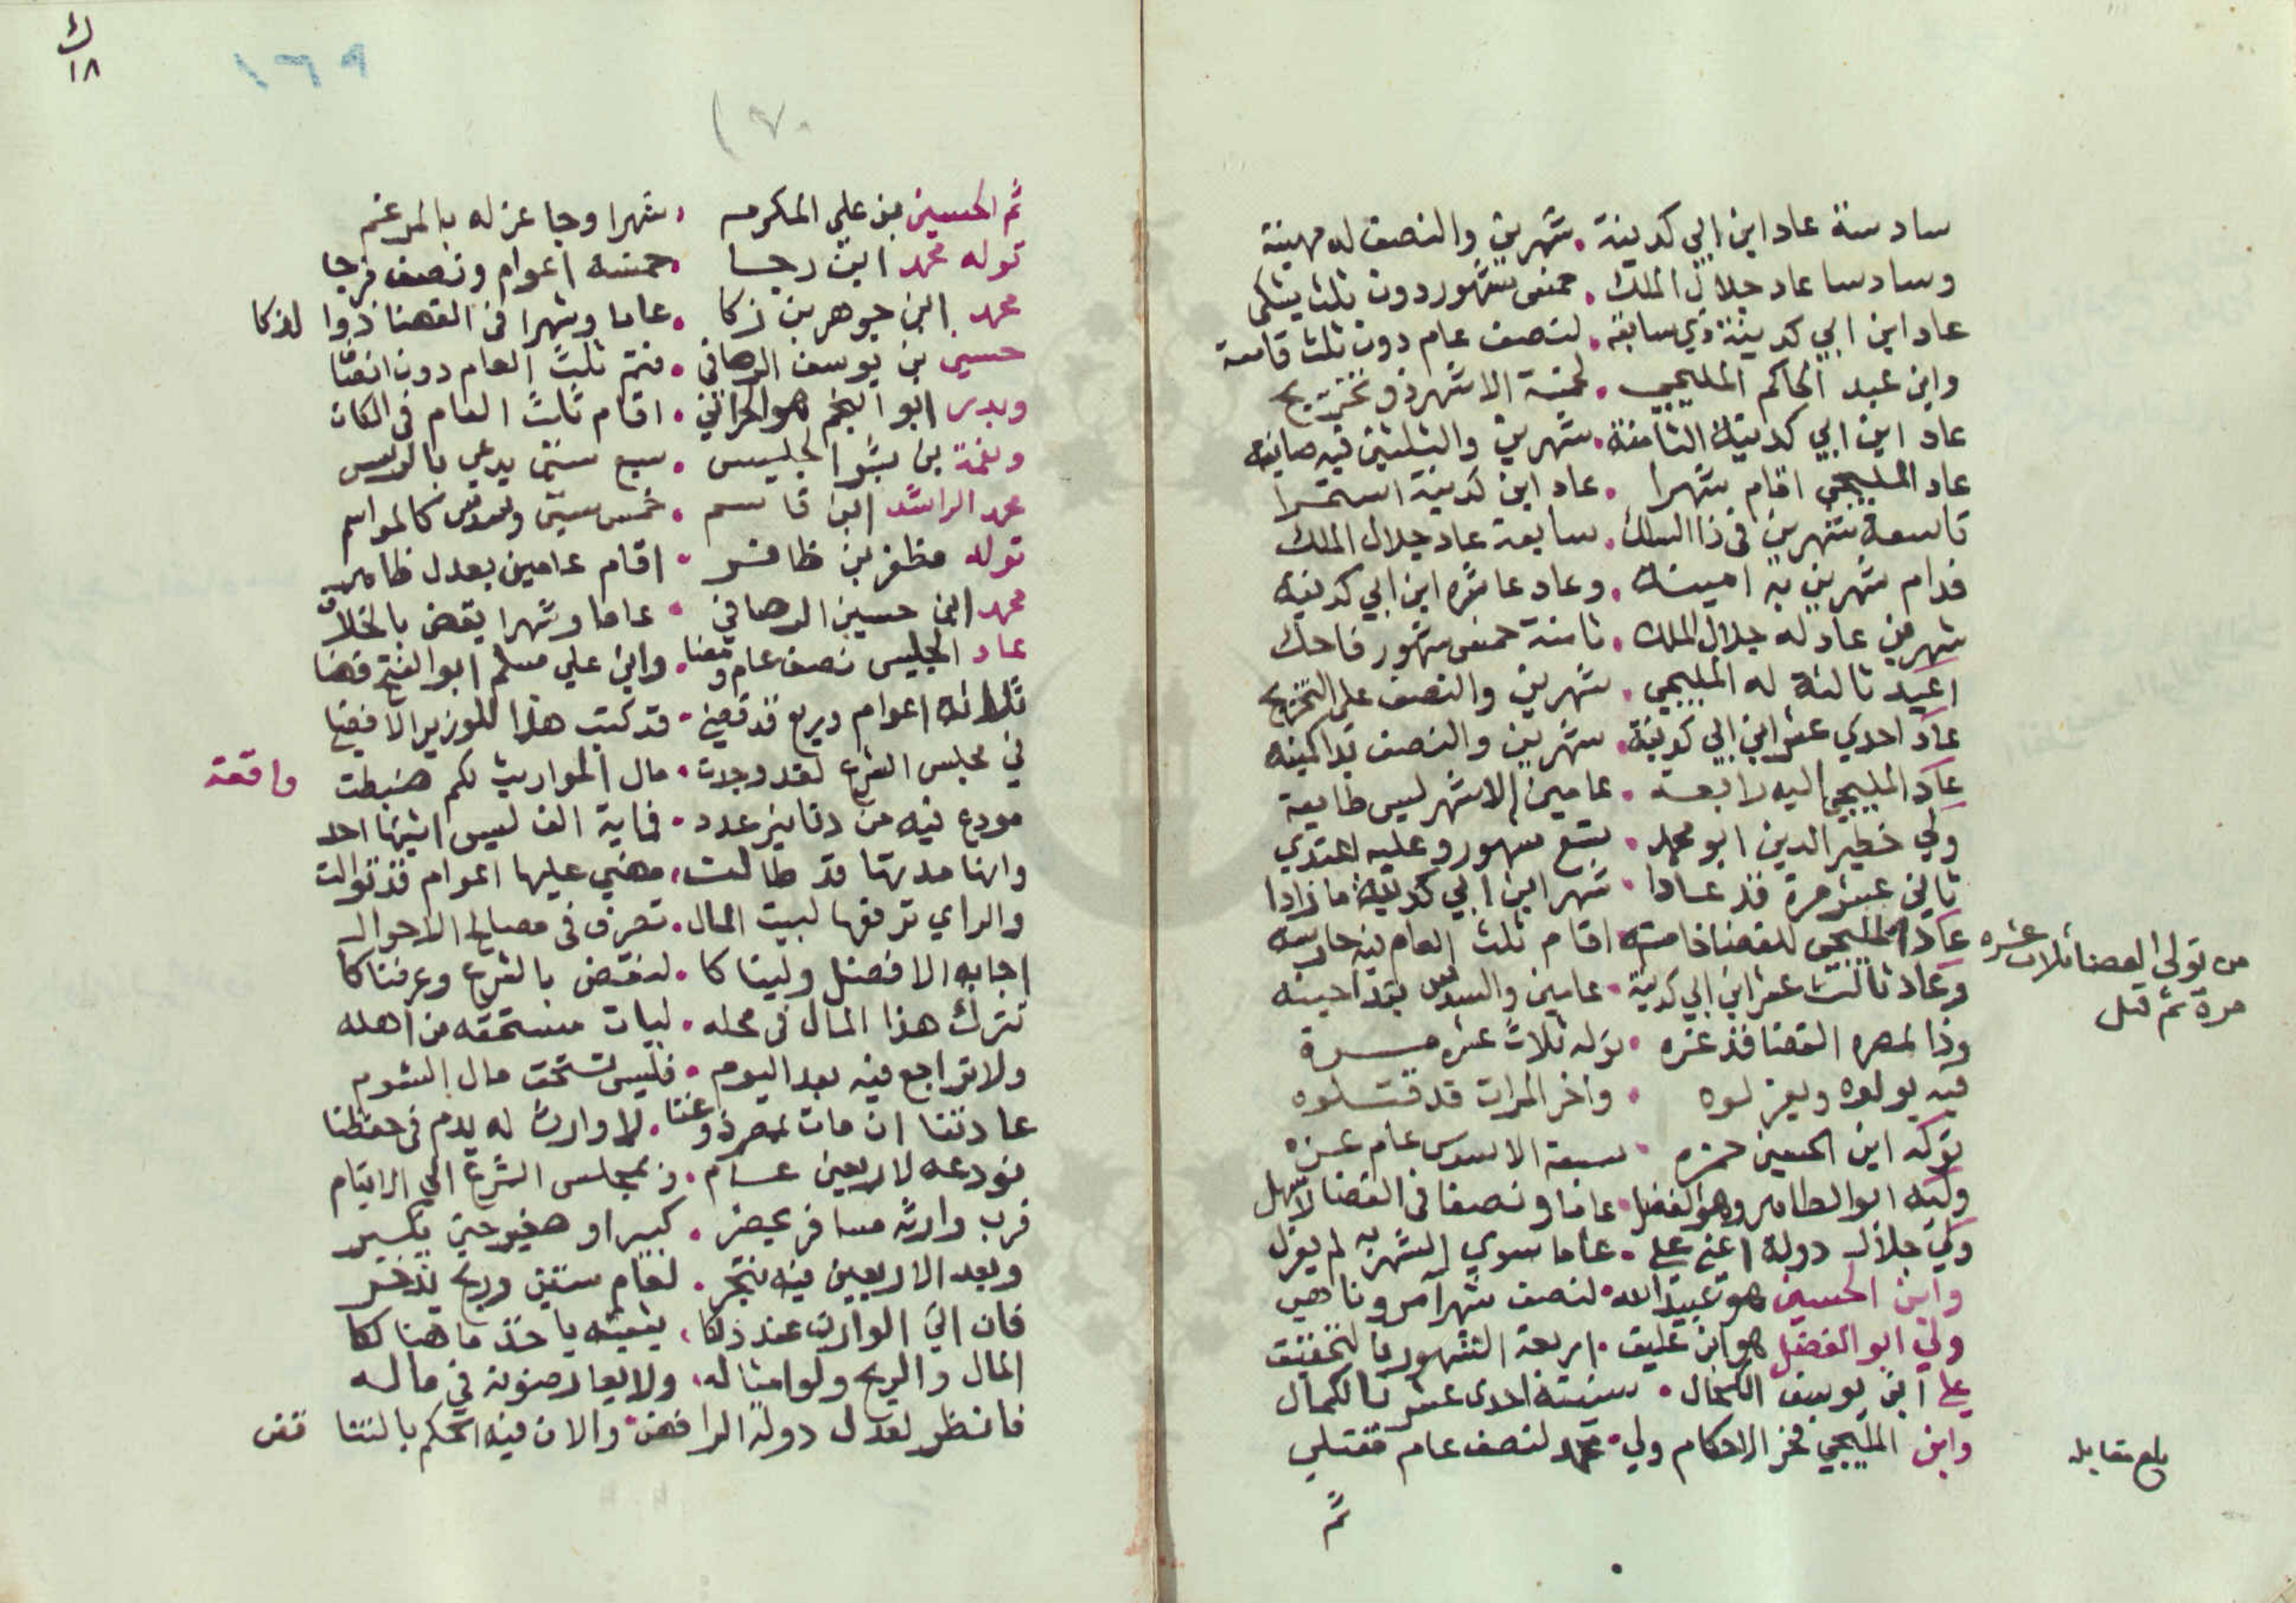 سادسة عاد ابن ابي كدينة . شهرين والنصف له مهينة
وسادسا عاد جلال الملك . خمس شهور دون ثلث يشكى
عاد ابن ابي كدينة ذي سابعة . لنصف عام دون ثلث قامعة
وابن عبد الحاكم المليجي . لخمسة الاشهر ذو تخريج
عاد ابن ابي كدينة الثامنة . شهرين والثلثين فيه صاينه
عاد المليجي اقام شهرا . عاد ابن كدينة استمرا
تاسعة شهرين في ذا السلك . سابعة عاد جلال الملك
فدام شهرين به امينه . وعاد عاشره ابن ابي كدينة
شهرين عاد له جلال الملك . ثامنة خمس شهور فاحك
اعيد ثالثة له المليجي . شهرين والنصف على التخريج
عاد احدي عشر ابن ابي كدينة . شهرين والنصف
عاد المليجي اليه رابعة . عامين الاشهر ليس طايعة
ولي خطير الدين ابو محمد . تسع شهور وعليه اعتدي
ثاني عشر مرة قد عادا . شهر ابن ابي كدينة ما زادا
عاد المليجي للقضا خامسه اقام ثلث العام فيه حارسه
وعاد ثالث عشر ابن ابي كدينة . عامين والسدس
من تولى القضا ثلاث عشره
مرة ثم قتل
وذا لمصره القضا قد غره . توله ثلاث عشر مرة
فيه يولوه ويعزلوه . واخر المرات قد قتلوه
توله ابن الحسين حمزه . سبعة الاسدس عام عزه
وليه ابو الطاهر وهو الفضل . عاما ونصفا في القضا لا سهل
ولي جلال دولة اعني علي . عاما سوي الشهر به لم يعزل
وابن الحسين هو عبيد الله . لنصف شهر آمر وناهي
ولي ابو الفضل هو ابن عتيق . اربعة الشهور بالتحقيق
علي ابن يوسف الكحال . سنة احدى عشر بالكمال
وابن المليجي فخر الاحكام ولي . محمد لنصف عام فقتلي
بلغ مقابله
ثم
ك
١٨
ثم الحسين بن علي المكرمه . شهرا وجا عزله بالمرغم
توله محمد ابن رجا . خمسة اعوام ونصف فرجا
محمد ابن جوهر بن ذكا . عاما وشهرا في القضا ذوا
حسين بن يوسف الرصافي . فتم ثلث العام دون
وبدر ابو النجم هو الحراني . اقام ثلث العام في
ونعمة بن بشر الجليس . سبع سنين يدعي
محمد الراشد ابن قاسم . خمس سنين وسدس كالمواسم
توله مظفر بن ظافر . اقام عامين بعدل ظاهر
محمد ابن حسين الرصافي . عاما وشهرا يقض بالخلاف
عاد الجليس نصف عام . وابن علي مسلم ابو الفتح قضا
ثلاثه اعوام وربع قد قضي . قد كتب هذا للوزير الافضل
في مجلس الشرع لقد وجدت . مال المواريث لكم ضبطت
واقعة
مودع فيه من دنانير عدد . فماية الف ليس احد
وانها مدتها قد طالت . مضي عليها اعوام قد توالت
والراي ترفعها لبيت المال . تصرف في مصالح الاحوال
اجابه الافضل ولينا كا . لتقض بالشرع وعرفنا كا
نترك هذا المال في محله . ليات مستحقه من اهله
ولا تراجع فيه بعد اليوم . فليس نستحق مال الشوم
عادتنا ان مات لمصر . لا وارث له يدم في حفظنا
نودعه لاربعين عام . في مجلس الشرع الي الايتام
فرب وارثه مسافر يحضر . كبير او صغير حين يكبر
وبعد الاربعين فيه نتجر . لعام ستين وربح يدخر
فان اتي الوارث عند ذلكا . يثبته ياخذ ما هنالكا
المال والربح ولو امثاله . ولا يعارضونه في ماله
فانظر لعدل دولة الرافض . والان فيه الحكم